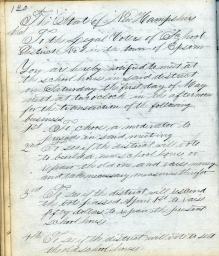 120
The State of New Hampshire
To the Legal Voters of School
District No in the town of Epsom
You are hereby notified to meet at
the school house in said district
on Saturday the first day of May
next at two o'clock in the afternoon
for the transaction of the following
business
1st To chose a moderator to
govern in said meeting
2nd To see if the district will vote
to build a new school house or
repair the old one and raise money
and take necessary measures therefor
3rd To see if the district will rescind
the vote passed April to raise
fifty dollars to repair the present
school house
4th To see if the district will vote to sell
the old school house